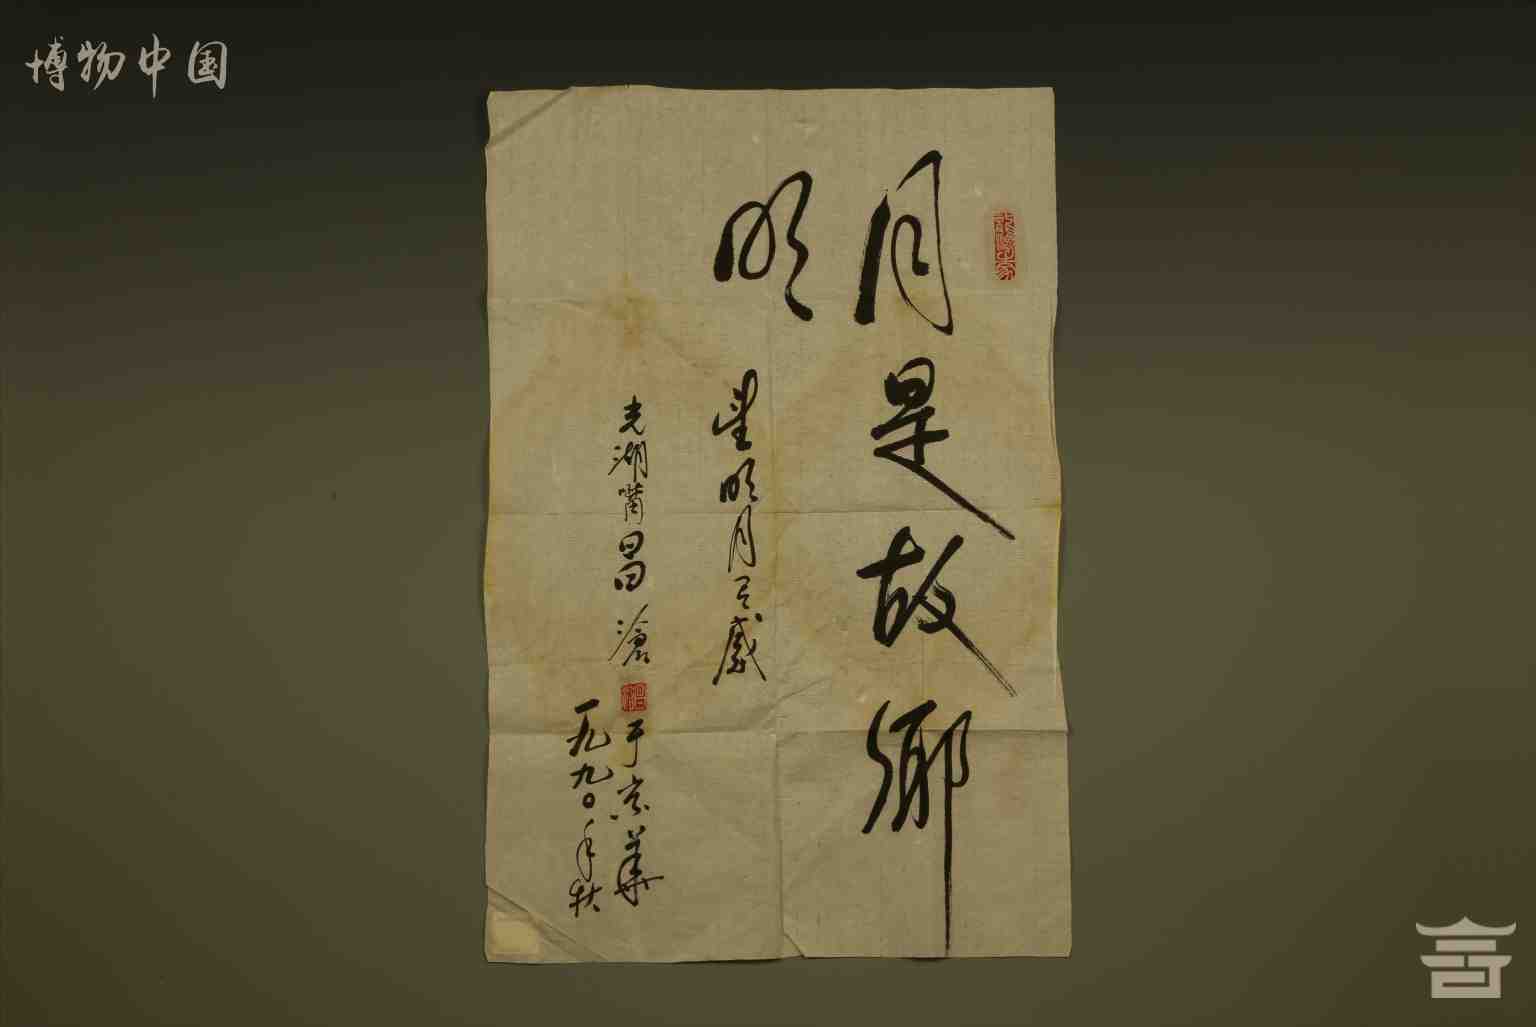 博物中国
月是故乡
明
望明月有感
光湖嘴昌沧
于京华
一九九〇年秋